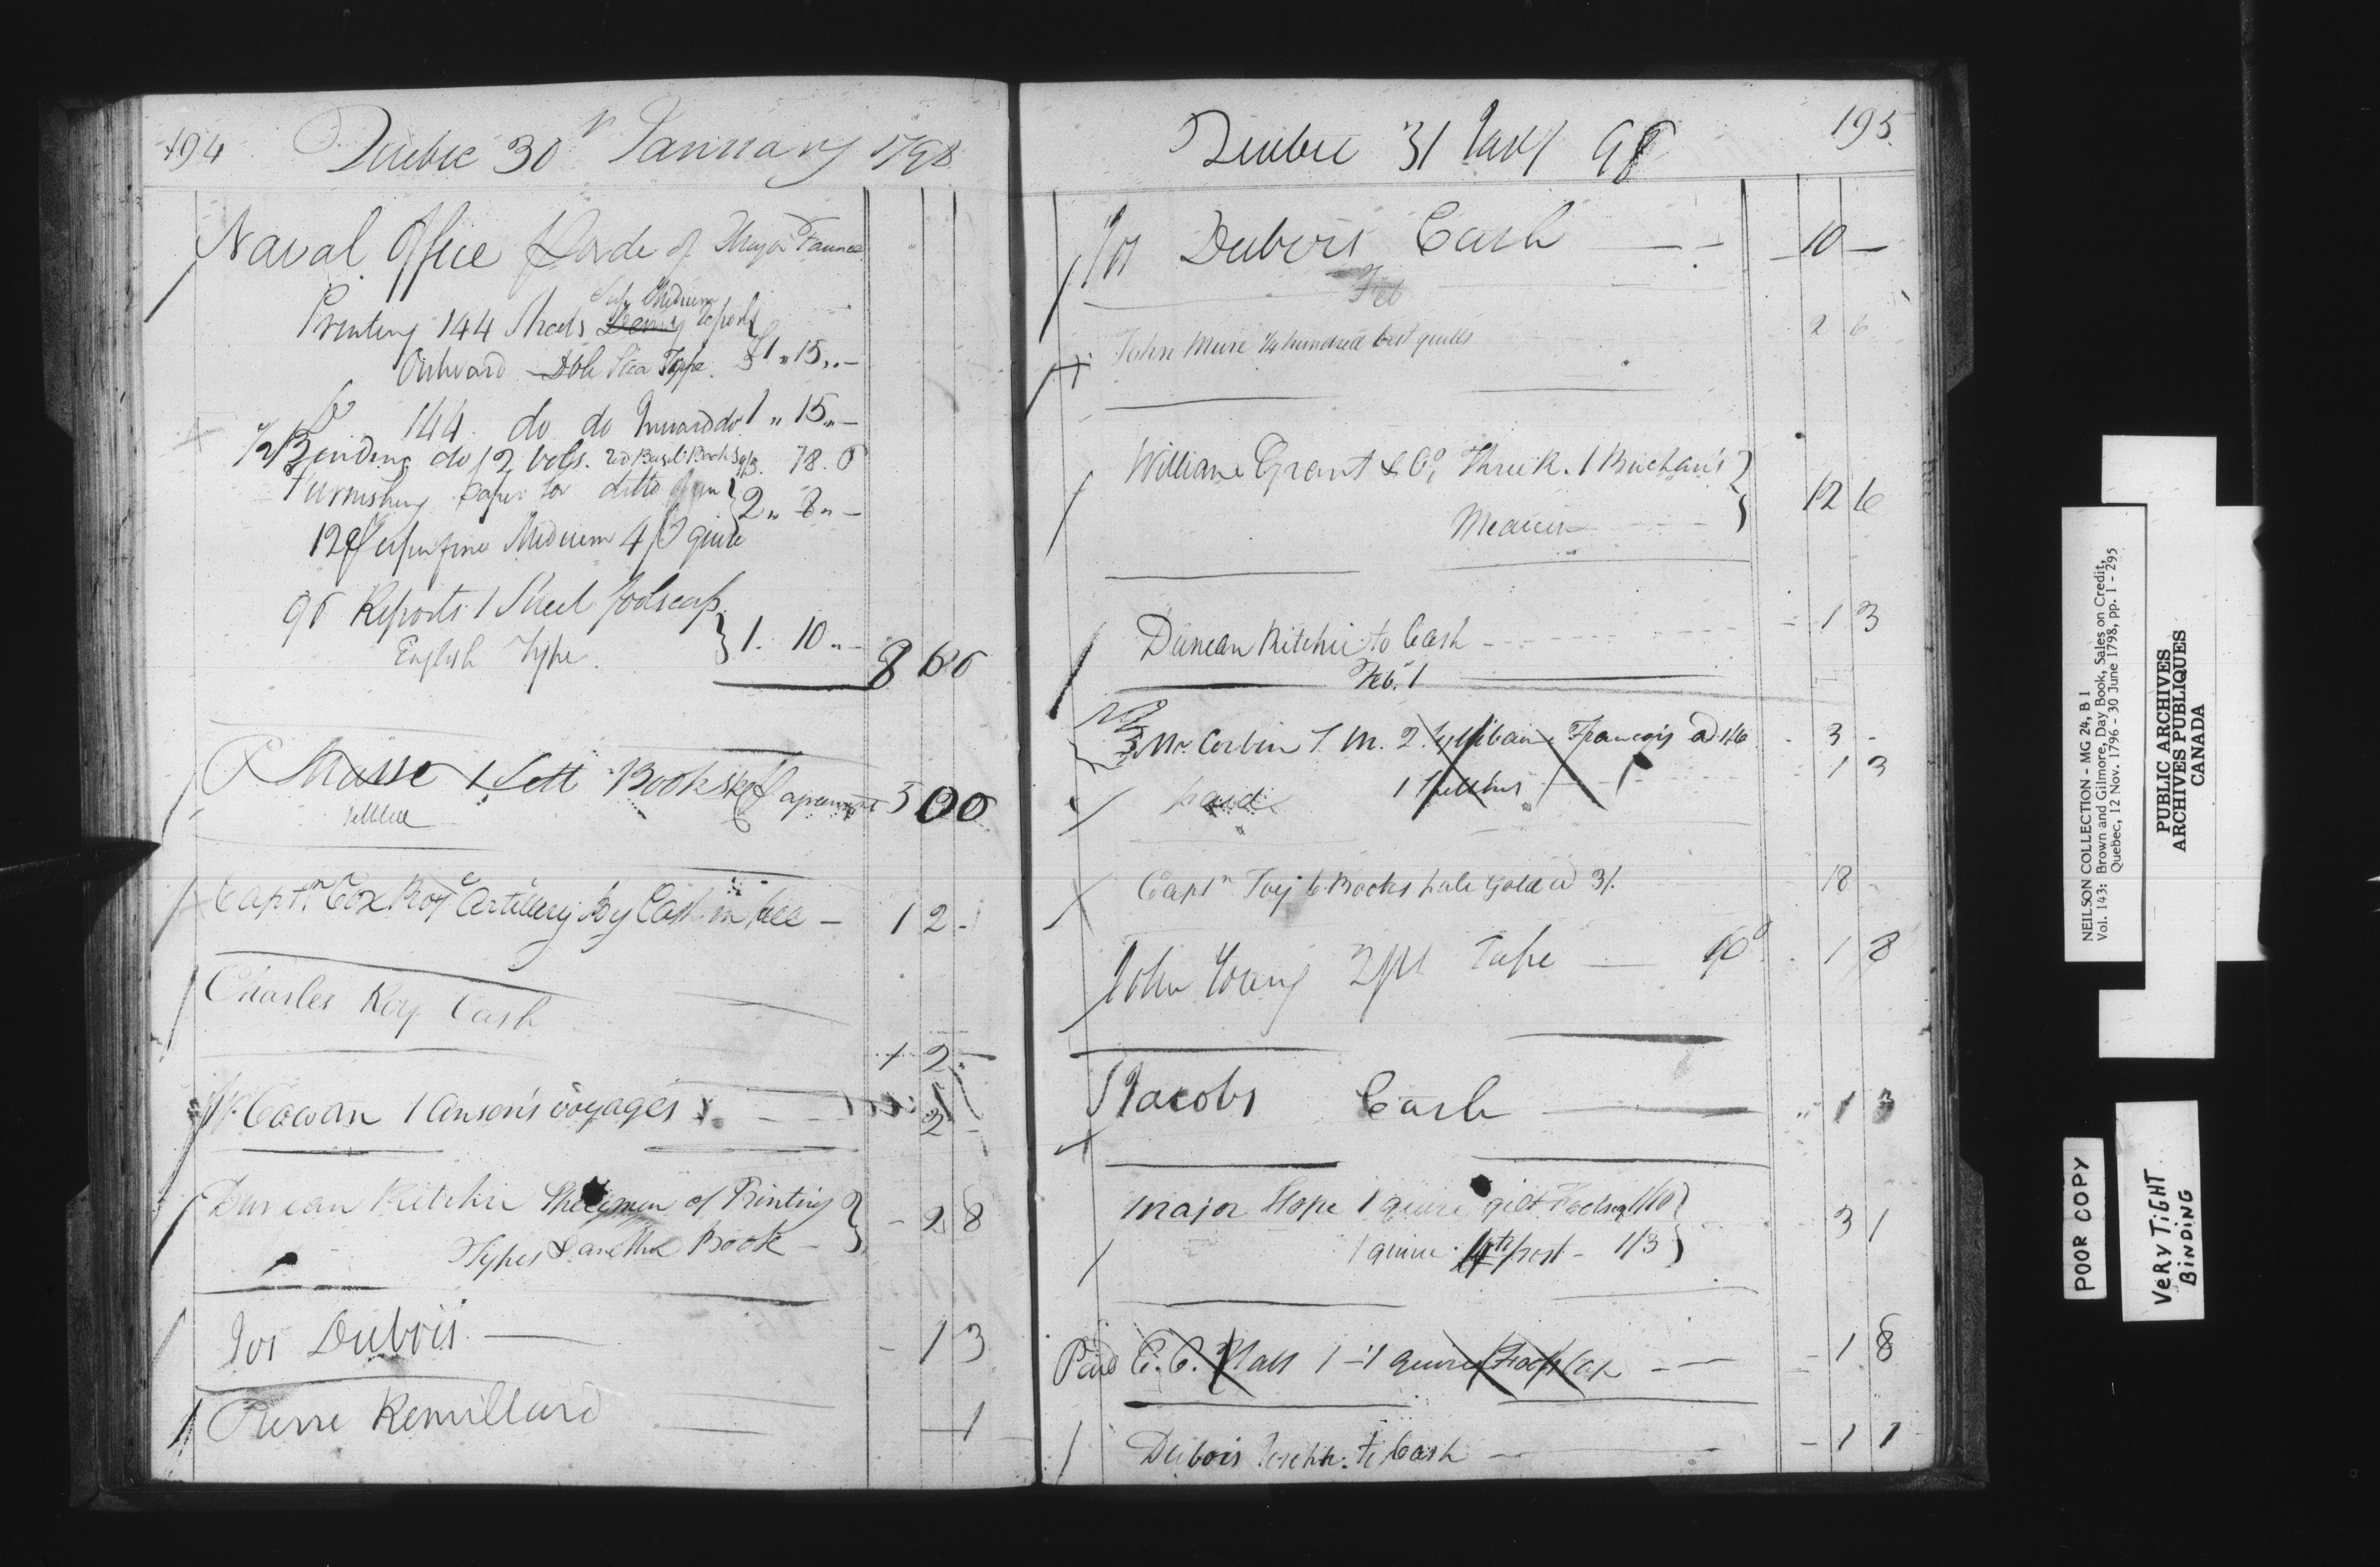 194 Quebec 30th January 1798
Naval Office
Printing 144 Sheets Demy Reports
Sup. Medium
Outward £1 " 15 " -
Do 144 do do Inward do 1 " 15 " -
Binding do 12 vols. 18. 0
Furnishing paper for ditto 2 " 8 " -
12 Superfine Medium 4/ quire
96 Reports 1 Sheet foolscap
English Type. 1. 10 " -
8 6 0
P Masse 1 Sett Books 5 0 0
Capt. Cox Royl Artillery By Cash in full - 1 2 -
Charles Roy Cash
1 2 -
Cowan 1 Anson's voyages 2 -
Duncan Ritchie Specimen of Printing
Types & another Book - - 2 8
Jos Dubois - 1 3
Pierre Remillard - 1 -
Quebec 31 Jany 98 195
Jos Dubois Cash - 10 -
Feb
John Mure 1/4 hundred best quills 2 6
William Grant & Co. 1 Buchan's
Medicine 12 6
Duncan Ritchie to Cash - 1 3
Feb. 1
Mr. Corbin T. M. 2 Francois @ 1/6 3 -
paid 1 1 3
Captn 6 Books half Gold @ 3/. 18 -
John Young 2 ps Tape 10d 1 8
Jacobs Cash 1 3
Major Hope 1 quire gilt 1/10
1 quire post - 1/3 3 1
Paid 1 quire Fools Cap - 1 8
Dubois Joseph. to Cash - 1 1
NEILSON COLLECTION - MG 24, B 1
Vol. 143: Brown and Gilmore, Day Book, Sales on Credit,
Quebec, 12 Nov. 1796 - 30 June 1798, pp. 1 - 295
PUBLIC ARCHIVES
ARCHIVES PUBLIQUES
CANADA
POOR COPY
VERY TiGHT
BiNDiNG